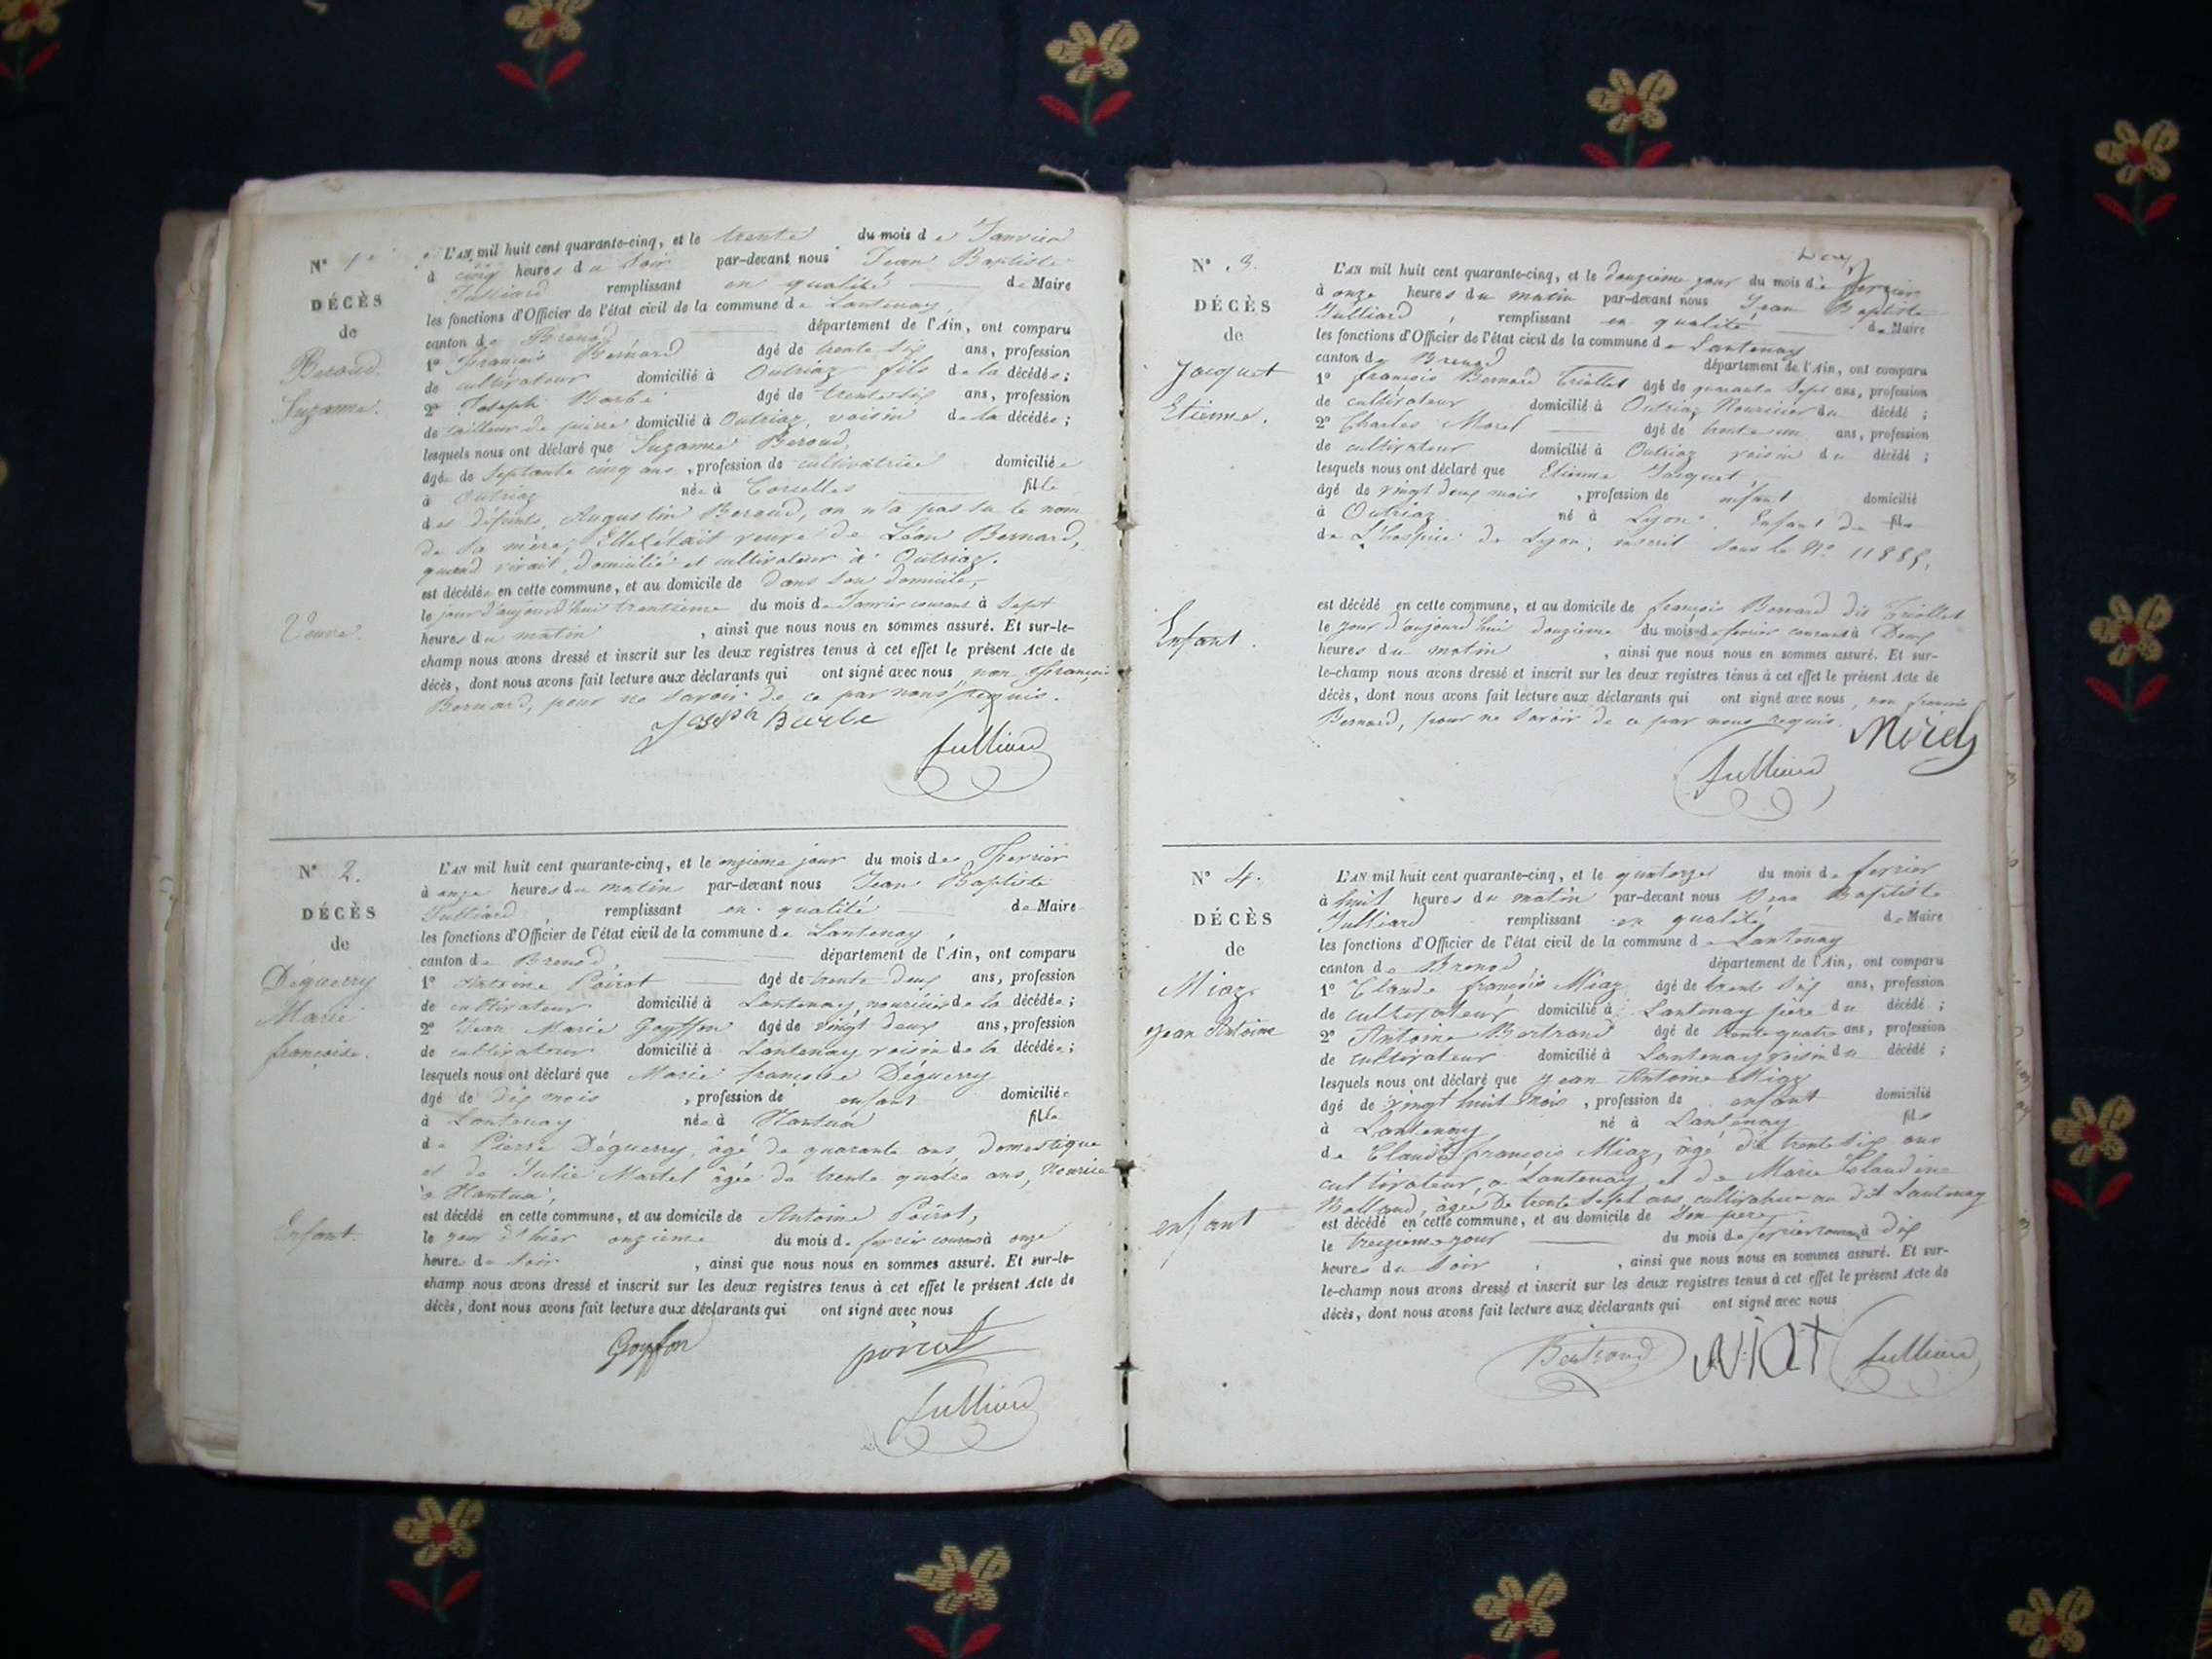 N° 1er
DÉCÈS
de
Beroud
Suzanne.
Veuve.
L'AN mil huit cent quarante-cinq, et le trente du mois de Janvier
à cinq heures du soir par-devant nous Jean Baptiste
Julliard remplissant en qualité de Maire
les fonctions d'Officier de l'état civil de la commune de Lantenay,
canton de Brenod département de l'Ain, ont comparu
1° François Bernard âgé de trente six ans, profession
de cultivateur domicilié à Outriaz fils de la décédée;
2° Joseph Barbe âgé de trente six ans, profession
de tailleur de pierre domicilié à Outriaz, voisin de la décédée;
lesquels nous ont déclaré que Suzanne Beroud,
âgée de septante cinq ans, profession de cultivatrice domiciliée
à Outriaz née à Corcelles fille
des défunts, Augustin Beroud, on n'a pas su le nom
de sa mère, Elle était veuve de Léon Bernard,
quand vivait, domicilié et cultivateur à Outriaz.
est décédée en cette commune, et au domicile de dans son domicile,
le jour d'aujourd'hui trentième du mois de Janvier courant à sept
heures du matin, ainsi que nous nous en sommes assuré. Et sur-le-
champ nous avons dressé et inscrit sur les deux registres tenus à cet effet le présent Acte de
décès, dont nous avons fait lecture aux déclarants qui ont signé avec nous, non François
Bernard, pour ne savoir de ce par nous requis.
Joseph Barbe
Julliard
N° 2.
DÉCÈS
de
Déguerry
Marie
françoise.
Enfant.
L'AN mil huit cent quarante-cinq, et le onzieme jour du mois de Fevrier
à onze heures du matin par-devant nous Jean Baptiste
Julliard, remplissant en qualité de Maire
les fonctions d'Officier de l'état civil de la commune de Lantenay,
canton de Brenod, département de l'Ain, ont comparu
1° Antoine Poirot âgé de trente deux ans, profession
de cultivateur domicilié à Lantenay, nouricier de la décédée;
2° Jean Marie Goyffon âgé de vingt deux ans, profession
de cultivateur domicilié à Lantenay voisin de la décédée;
lesquels nous ont déclaré que Marie françoise Déguerry
âgé de dix mois, profession de enfant domiciliée
à Lantenay née à Nantua fille
de Pierre Déguerry, âgé de quarante ans domestique
et de Julie Martel âgée de trente quatre ans, Nourice
à Nantua,
est décédé en cette commune, et au domicile de Antoine Poirot,
le jour d'hier onzieme du mois de fevrier courant à onze
heures du soir, ainsi que nous nous en sommes assuré. Et sur-le-
champ nous avons dressé et inscrit sur les deux registres tenus à cet effet le présent Acte de
décès, dont nous avons fait lecture aux déclarants qui ont signé avec nous
Goyffon
poirot
Julliard
N° 3.
DÉCÈS
de
Jacquet
Etienne.
Enfant.
L'AN mil huit cent quarante-cinq, et le douzième jour du mois de fevrier
à onze heures du matin par-devant nous Jean Baptiste
Julliard, remplissant en qualité de Maire
les fonctions d'Officier de l'état civil de la commune de Lantenay
canton de Brenod département de l'Ain, ont comparu
1° françois Bernard Triollet âgé de quarante sept ans, profession
de cultivateur domicilié à Outriaz Nouricier du décédé;
2° Charles Morel âgé de trente un ans, profession
de cultivateur domicilié à Outriaz voisin du décédé;
lesquels nous ont déclaré que Etienne Jacquet,
âgé de vingt deux mois, profession de enfant domicilié
à Outriaz né à Lyon. Enfant de fils
de L'hospice de Lyon, inscrit sous le N° 11885.
est décédé en cette commune, et au domicile de françois Bernard dit Triollet
le jour d'aujourd'hui douzieme du mois de fevrier courant à Deux
heures du matin, ainsi que nous nous en sommes assuré. Et sur-
le-champ nous avons dressé et inscrit sur les deux registres tenus à cet effet le présent Acte de
décès, dont nous avons fait lecture aux déclarants qui ont signé avec nous, non françois
Bernard, pour ne savoir de ce par nous requis.
Morel
Julliard
N° 4.
DÉCÈS
de
Miaz
jean Antoine
enfant
L'AN mil huit cent quarante-cinq, et le quatorze du mois de fevrier
à huit heures du matin par-devant nous Jean Baptiste
Julliard remplissant en qualité de Maire
les fonctions d'Officier de l'état civil de la commune de Lantenay
canton de Brenod département de l'Ain, ont comparu
1° Claude françois Miaz âgé de trente six ans, profession
de cultivateur domicilié à Lantenay père du décédé;
2° Antoine Bertrand âgé de trente quatre ans, profession
de cultivateur domicilié à Lantenay voisin du décédé;
lesquels nous ont déclaré que jean Antoine Miaz
âgé de vingt huit mois, profession de enfant domicilié
à Lantenay né à Lantenay fils
de Claude françois Miaz, âgé de trente six ans
cultivateur, a Lantenay, et de Marie Claudine
Molland, âgée de trente sept ans, cultivateur au dit Lantenay
est décédé en cette commune, et au domicile de son pere,
le treizieme jour du mois de fevrier courant à dix
heures du soir, ainsi que nous nous en sommes assuré. Et sur-
le-champ nous avons dressé et inscrit sur les deux registres tenus à cet effet le présent Acte de
décès, dont nous avons fait lecture aux déclarants qui ont signé avec nous
Bertrand
Julliard